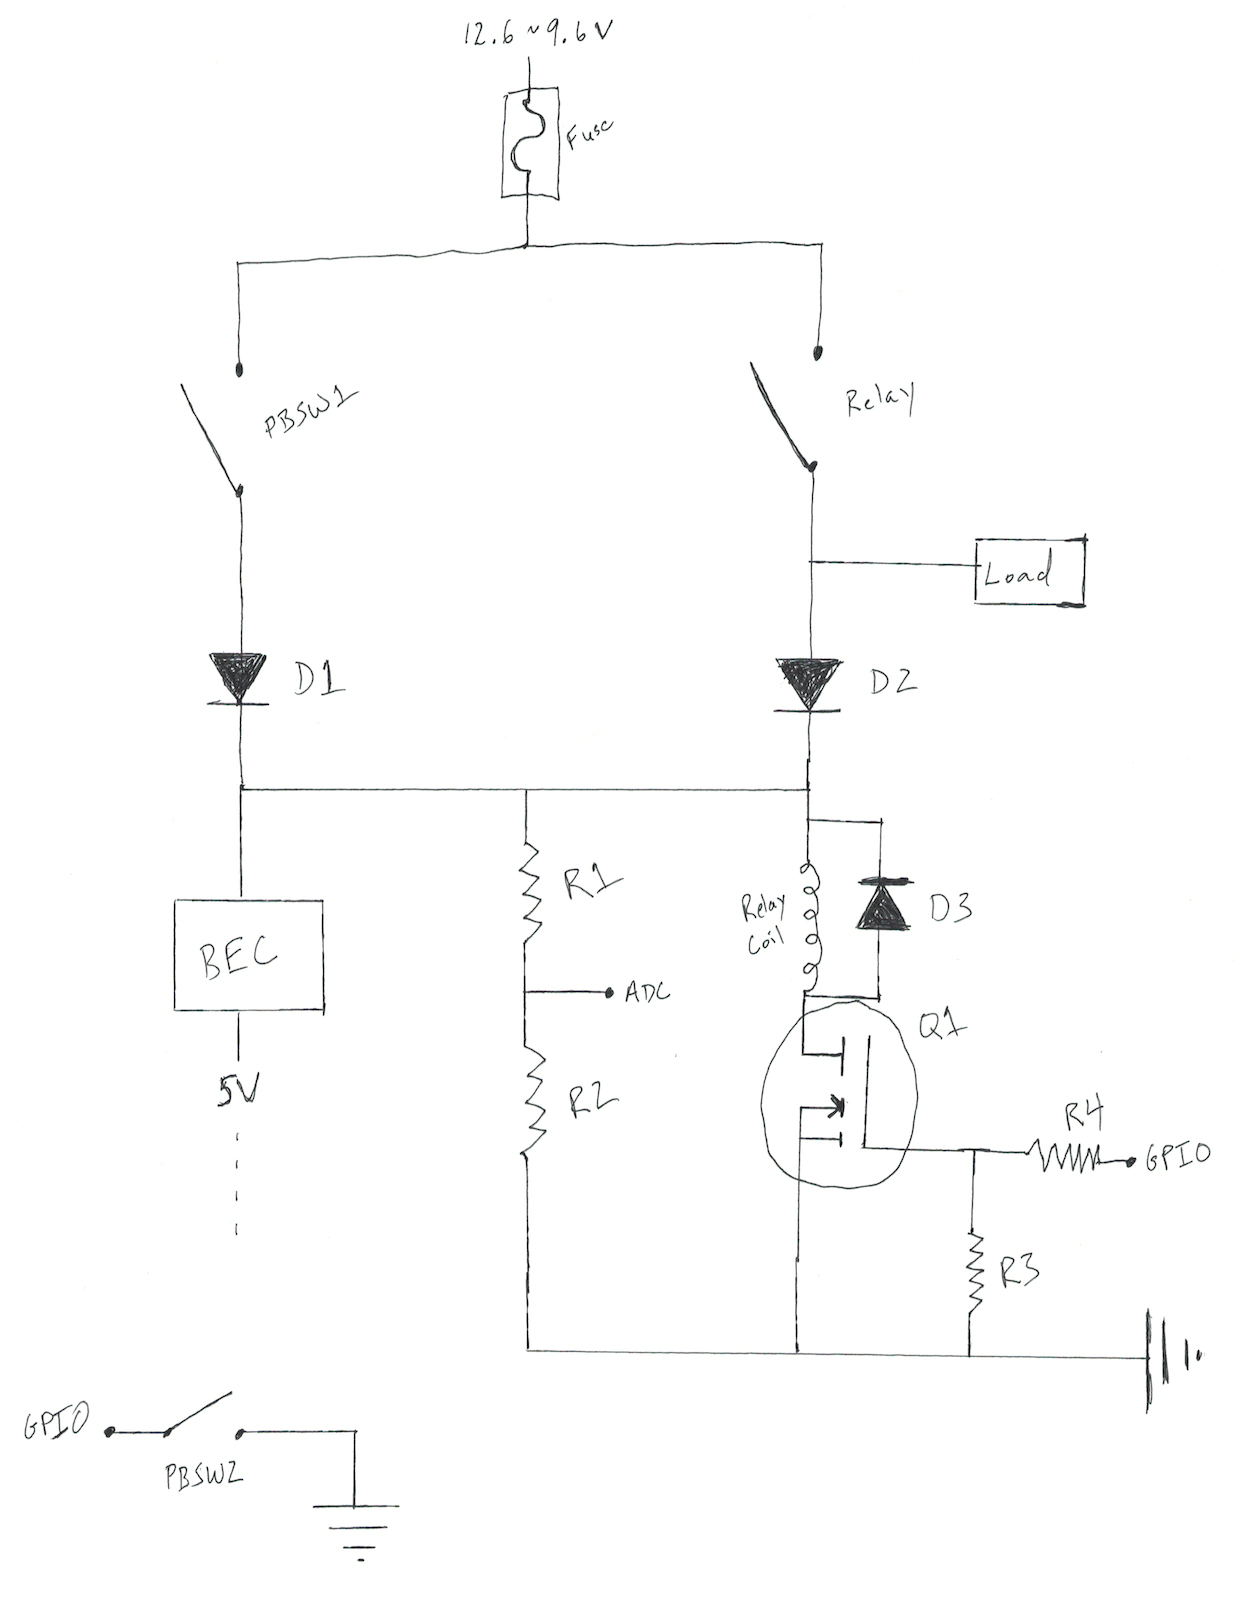 12.6~9.6V
Fuse
PBSW1
Relay
Load
D1
D2
R1
Relay
Coil
D3
BEC
ADC
Q1
5V
R2
R4
GPIO
R3
GPIO
PBSW2